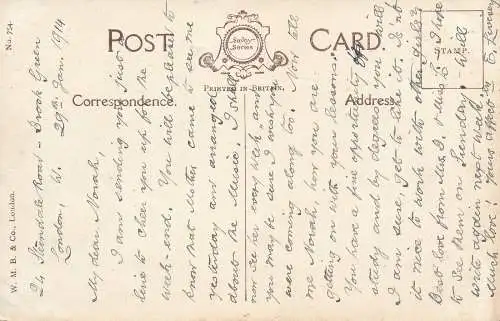 No. 754.
POST CARD.
Sudny Series
PRINTED IN BRITAIN.
Correspondence.
Address.
STAMP.
W. M. B. & Co., London.
24, Road - Brook Green
London, W. 29th Jan. 1914
My dear Norah,
I am sending you just a
line to cheer you up for the
week-end. You will be pleased to
know that Mother came to see me
yesterday and arranged
about the Music. I shall
now see her every week and
you may be sure I wish you
were coming along too. Now tell
me Norah, how you are
getting on with your lessons.
You have a fine opportunity for
study and by degrees you will
I am sure, get to like it. Is it not
nice to work with other girls?
Best love from Mrs. D. & Miss L. I hope
to see them on Sunday. Will
write again next week.
Much love, yours